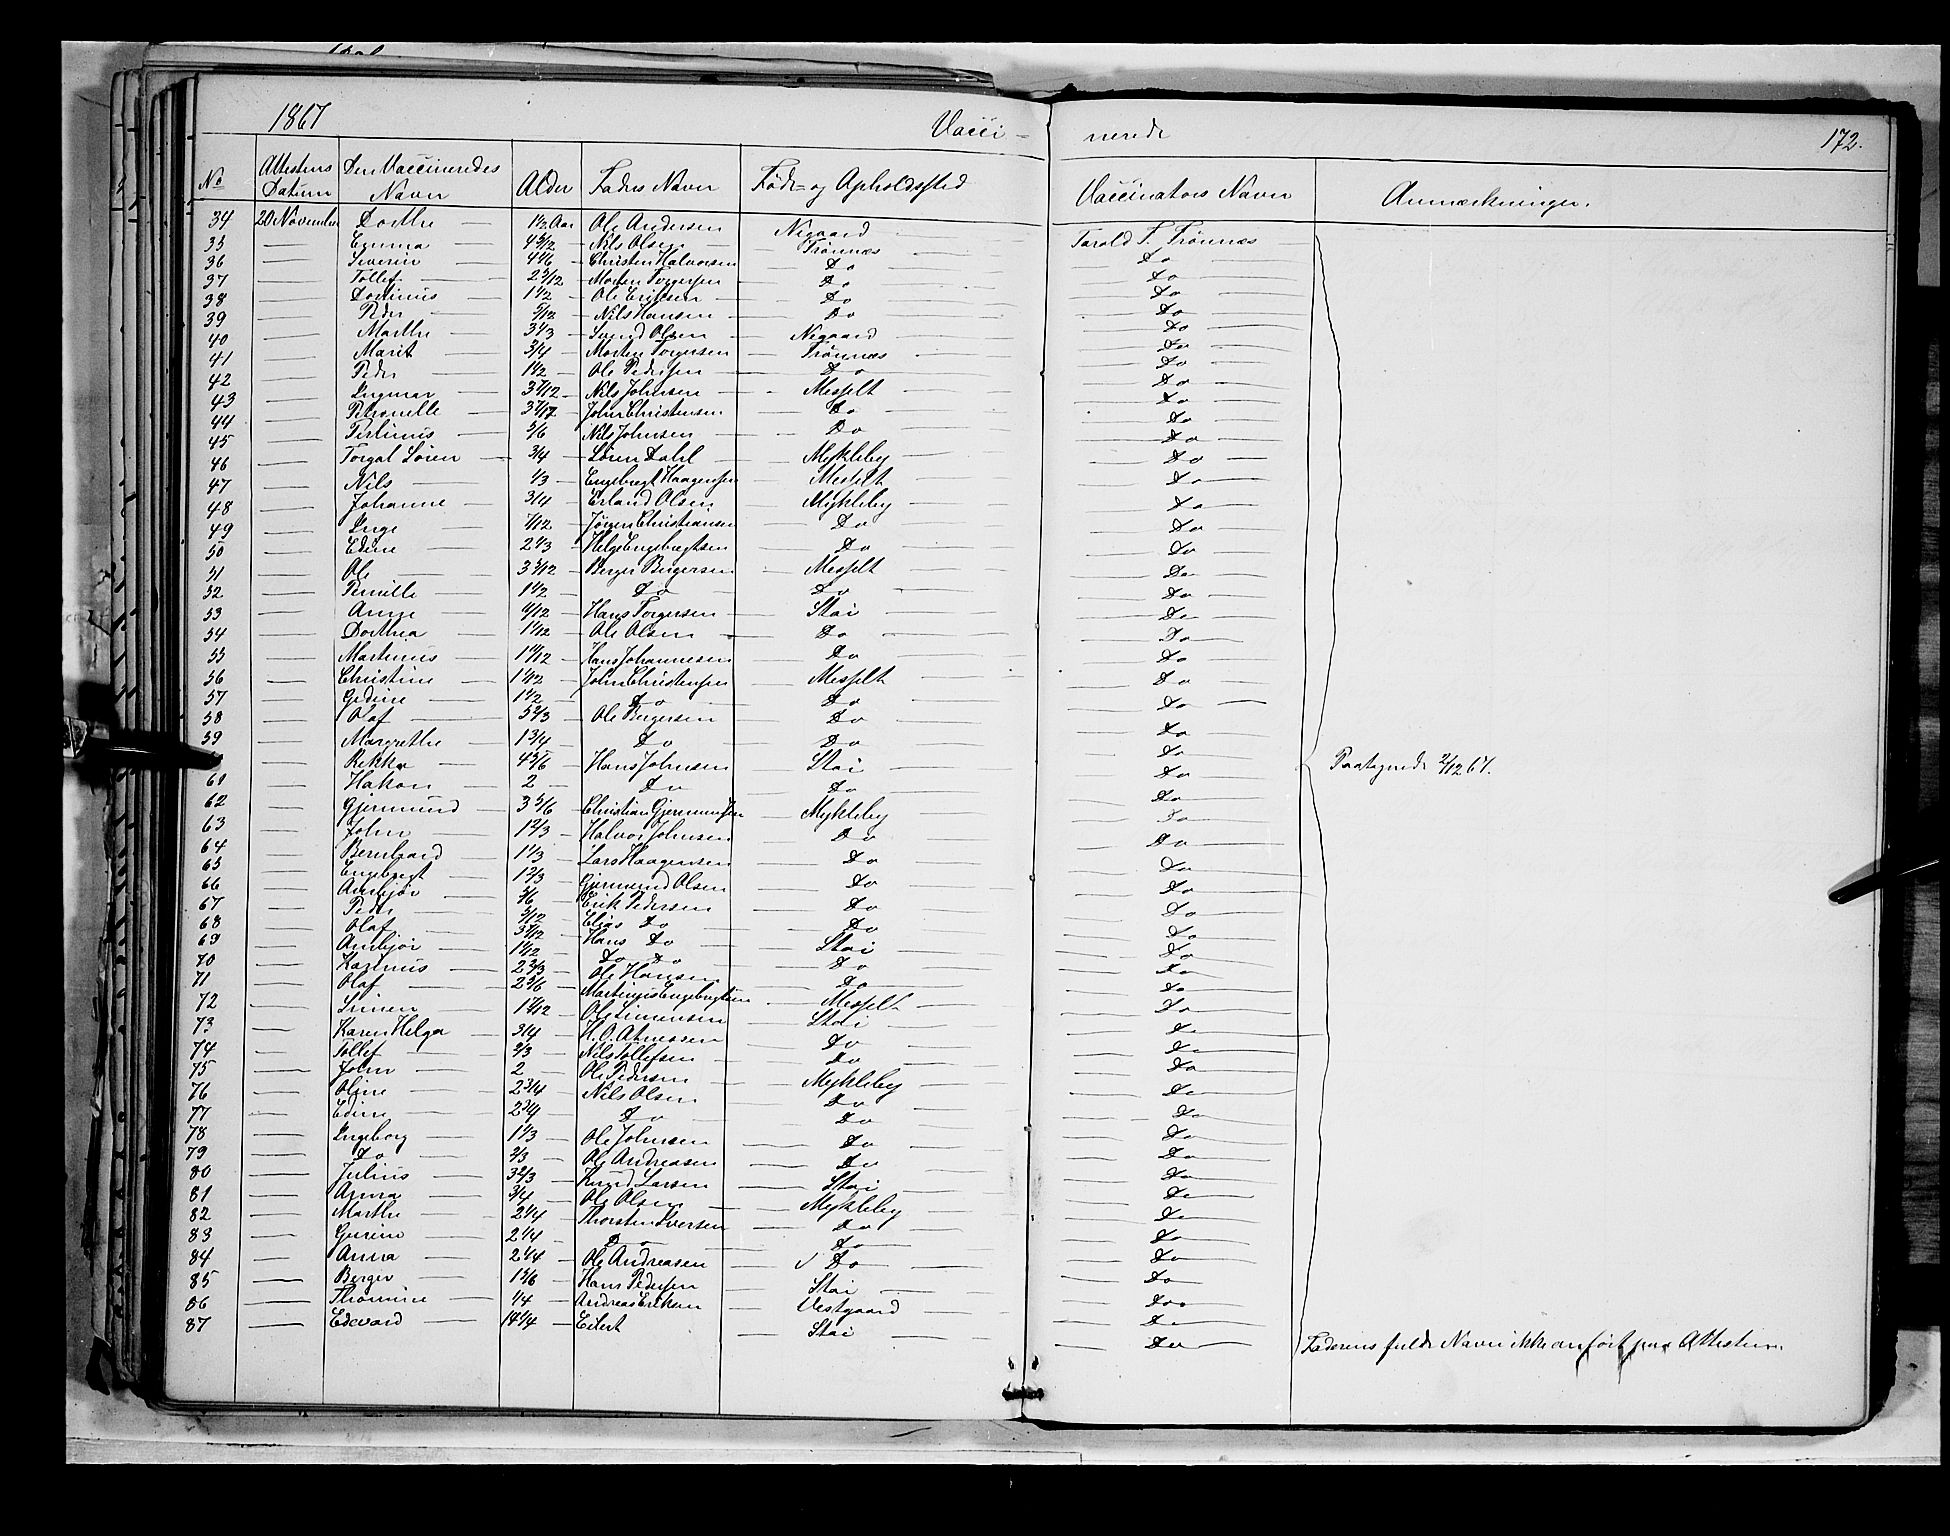 1867 Vacci- nerede 172.
No Attestens Datum Den Vaccineredes Navn Alder Faders Navn Føde- og Opholdssted Vaccinators Navn Anmærkninger.
34 20 November Dorthe 1 1/2 Aar Ole Andersen Negaard Tarald T. Trønnæs
35 — Emma 4 5/12 Nils Olsen Trønnæs Do
36 — Severin 4 1/6 Christen Halvorsen Do Do
37 — Tollef 2 5/12 Morten Torgersen Do Do
38 — 1 1/2 Ole Eriksen Do Do
39 — Peder 5/12 Nils Hansen Do Do
40 — Marthe 3 1/3 Svend Olsen Negaard Do
41 — Marit 3/4 Morten Torgersen Trønnæs Do
42 — Peder 1 1/2 Ole Pedersen Do Do
43 — Ingmar 3 7/12 Nils Johnsen Messelt Do
44 — Petronille John Christensen Do Do
45 — 5/6 Nils Johnsen Do Do
46 — Torgal Søren 3/4 Søren Dahl Mykleby Do
47 — Nils 1/3 Engebregt Haagensen Messelt Do
48 — Johanne 3/4 Erland Olsen Mykleby Do
49 — Inge 7/12 Jörgen Christiansen Do Do
50 — Edine 2 1/3 Helge Engebregtsen Do Do
51 — Ole 3 5/12 Berger Bergersen Messelt Do
52 — Pernille 1 1/2 Do Do Do
53 — Anne Hans Torgersen Stai Do
54 — Dorthea 1 1/12 Ole Olsen Do Do
55 — Martinus Hans Johannesen Do Do
56 — Christine 1 1/12 John Christensen Messelt Do
57 — Gedine 1 1/2 Do Do Do
58 — Olaf 5 2/3 Ole Bergersen Do Do
59 — Margrethe 1 3/4 Do Do Do
— Rikka 4 5/6 Hans Johnsen Stai Do Paategnede 2/12 67.
61 — Hakon 2 Do Do Do
62 — Gjermund 3 5/6 Christian Gjermundsen Mykleby Do
63 — John 1 2/3 Halvor Johnsen Do Do
64 — Bernhard 1 1/3 Lars Haagensen Do Do
65 — Engebregt 1 2/3 Gjermund Olsen Do Do
66 — Anbjør 5/6 Erik Pedersen Do Do
67 — Peder 5/12 Elias Do Do Do
68 — Olaf 3 7/12 Hans Do Stai Do
69 — Anbjør 1 1/12 Do Do Do Do
70 — Kasinus 2 2/3 Ole Hansen Do Do
71 — Olaf 2 5/6 Martinus Engebregtsen Messelt Do
72 — Simen Ole Simensen Stai Do
73 — Karen Helga 3/4 Do Do
74 — Tollef 2/3 Nils Tollefsen Do Do
75 — John 2 Ole Pedersen Mykleby Do
76 — Oline 2 3/4 Nils Olsen Do Do
77 — Edine 2 3/4 Do Do Do
78 — Ingeborg 1 1/3 Ole Johnsen Do Do
79 — Do 2/3 Ole Andreasen Do Do
80 — Julius 3 2/3 Knud Larsen Stai Do
81 — Anna 3/4 Ole Olsen Mykleby Do
82 — Marthe 2 1/4 Thorsten Iversen Do Do
83 — Gurine 2 1/4 Do Do Do
84 — Anna 2 1/4 Ole Andreasen Do Do
85 — Berger 1 5/6 Hans Pedersen Stai Do
86 — Thomine 1/4 Andreas Eriksen Vestgaard Do
87 — Edevard 14 1/4 Eilert Stai Do Faderens fulde Navn ikke anført paa Attesten.